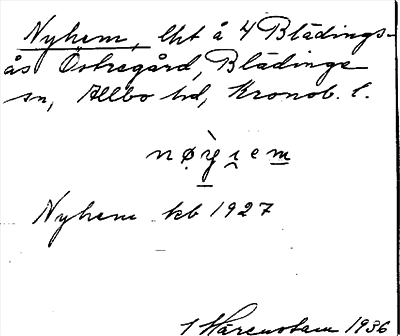 Nyhem, lht å 4 Blädings-
ås Östregård, Blädinge
sn, Allbo hd, Kronob. l.
Nyhem kb 1927
1936